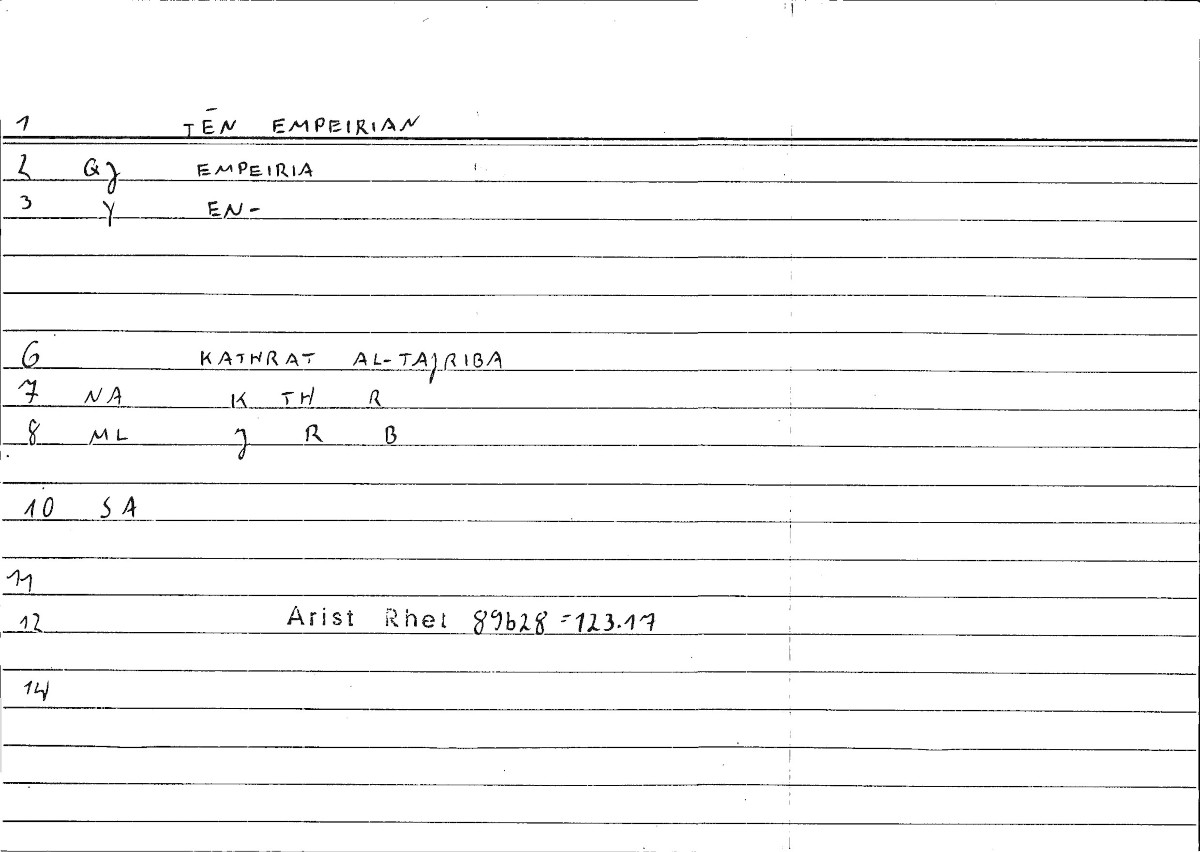 1 TĒN EMPEIRIAN
2 QJ EMPEIRIA
3 Y EN-
6 KATHRAT AL-TAJRIBA
7 NA K TH R
8 ML J R B
10 SA
11
12 Arist Rhet 89b28=123.17
14